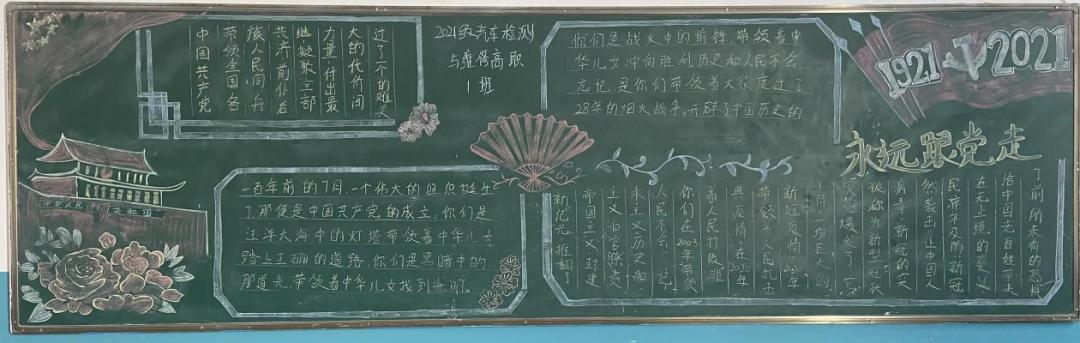 中国共产党
带领全国各
族人民同舟
共济前仆后
继凝聚全部
力量付出最
大的代价闯
过了一个的难关
2021级汽车检测
与维修高职
1班
你们是战火中的前锋,带领着中
华儿女冲向胜利历史和人民不会
忘记,是你们带领着大家度过了
28年的烟火战争,开辟了中国历史的
1921
2021
永远跟党走
中华人民共和国
一百年前的7月,一个伟大的组织诞生
了,那便是中国共产党的成立。你们是
汪洋大海中的灯塔带领着中华儿女
踏上正确的道路,你们是黑暗中的
那道光,带领着中华儿女找到光明。
新纪元,推翻了
帝国主义封建
主义和官僚资
本主义历史和
人民不会忘记
你们在2003年带领
着人民打败非
典疫情,在2020年
带领人民抗击
新冠疫情
被称为新型冠状
病毒,新冠的突
然袭击,让中国人
民猝不及防,新冠
进无止境的蔓延
给中国老百姓带来
了前所未有的恐慌